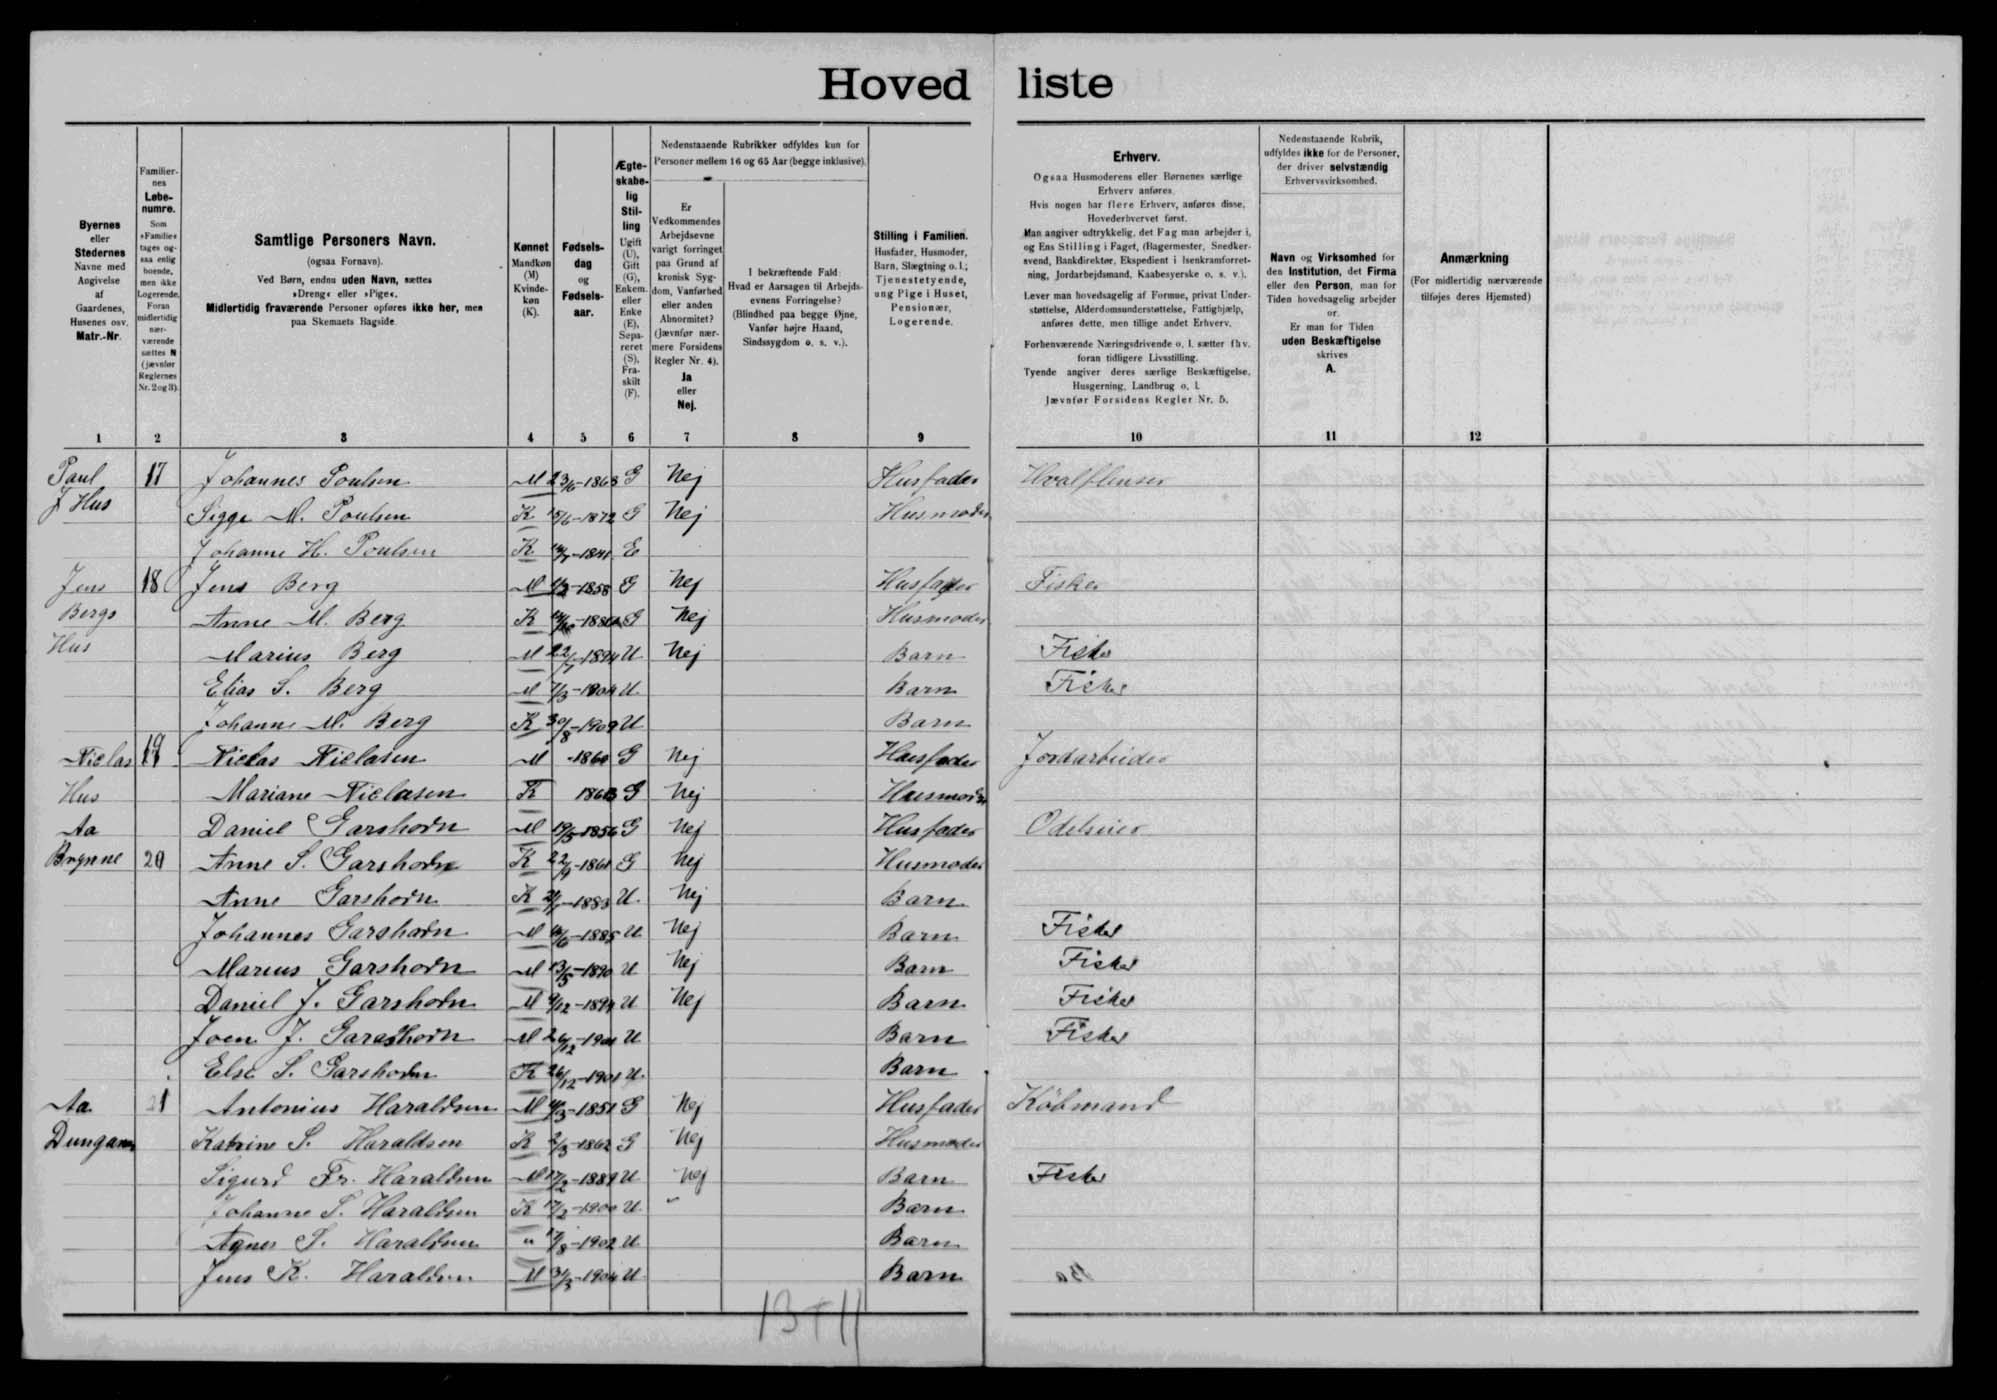 Hoved liste
Byernes
eller
Stedernes
Navne med
Angivelse
af
Gaardenes,
Husenes osv.
Matr.-Nr.
Familier-
nes
Løbe-
numre.
Som
»Familie«
tages og-
saa enlig
boende,
men ikke
Logerende.
Foran
midlertidig
nær-
værende
sættes N
(jævnfør
Reglernes
Nr. 2 og 3).
Samtlige Personers Navn.
(ogsaa Fornavn).
Ved Børn, endnu uden Navn, sættes
»Dreng« eller »Pige«.
Midlertidig fraværende Personer opføres ikke her, men
paa Skemaets Bagside.
Kønnet
Mandkøn
(M)
Kvinde-
køn
(K).
Fødsels-
dag
og
Fødsels-
aar.
Ægte-
skabe-
lig
Stil-
ling
Ugift
(U),
Gift
(G),
Enkem.
eller
Enke
(E),
Sepa-
reret
(S),
Fra-
skilt
(F).
Nedenstaaende Rubrikker udfyldes kun for
Personer mellem 16 og 65 Aar (begge inklusive).
Er
Vedkommendes
Arbejdsevne
varigt forringet
paa Grund af
kronisk Syg-
dom, Vanførhed
eller anden
Abnormitet?
(Jævnfør nær-
mere Forsidens
Regler Nr. 4).
Ja
eller
Nej.
I bekræftende Fald:
Hvad er Aarsagen til Arbejds-
evnens Forringelse?
(Blindhed paa begge Øjne,
Vanfør højre Haand,
Sindssygdom o. s. v.).
Stilling i Familien.
Husfader, Husmoder,
Barn, Slægtning o. l.;
Tjenestetyende,
ung Pige i Huset,
Pensionær,
Logerende.
Erhverv.
Ogsaa Husmoderens eller Børnenes særlige
Erhverv anføres.
Hvis nogen har flere Erhverv, anføres disse,
Hovederhvervet først.
Man angiver udtrykkelig, det Fag man arbejder i,
og Ens Stilling i Faget, (Bagermester, Snedker-
svend, Bankdirektør, Ekspedient i Isenkramforret-
ning, Jordarbejdsmand, Kaabesyerske o. s. v.).
Lever man hovedsagelig af Formue, privat Under-
støttelse, Alderdomsunderstøttelse, Fattighjælp,
anføres dette, men tillige andet Erhverv.
Forhenværende Næringsdrivende o. l. sætter fhv.
foran tidligere Livsstilling.
Tyende angiver deres særlige Beskæftigelse,
Husgerning, Landbrug o. l.
Jævnfør Forsidens Regler Nr. 5.
Nedenstaaende Rubrik,
udfyldes ikke for de Personer,
der driver selvstændig
Erhvervsvirksomhed.
Navn og Virksomhed for
den Institution, det Firma
eller den Person, man for
Tiden hovedsagelig arbejder
for.
Er man for Tiden
uden Beskæftigelse
skrives
A.
Anmærkning
(For midlertidig nærværende
tilføjes deres Hjemsted)
1 2 3 4 5 6 7 8 9 10 11 12
Paul 17 Johannes Poulsen M 23/6-1868 G Nej Husfader Hvalflenser
J Hus Sigga M. Poulsen K 1872 G Nej Husmoder
Johanne H. Poulsen K 1841 E
Jens 18 Jens Berg M 1858 G Nej Husfader Fisker
Bergs Anne M. Berg K G Nej Husmoder
Hus Marius Berg M 22/7-1894 U Nej Barn Fisker
Elias S. Berg M 7/3-1904 U Barn Fisker
Johanne M. Berg K 30/8-1909 U Barn
Niclas 19 Niclas Niclasen M 1860 G Nej Husfader Jordarbeider
Hus Mariane Niclasen K 1863 G Nej Husmoder
Aa Daniel Garshorn M 19/5-1856 G Nej Husfader Odelseier
Brynne 20 Anne S. Garshorn K 1861 G Nej Husmoder
Anne Garshorn K 1883 U. Nej Barn
Johannes Garshorn M 1885 U Nej Barn Fisker
Marius Garshorn M 13/5-1890 U Nej Barn Fisker
Daniel J. Garshorn M 9/12-1894 U Nej Barn Fisker
Joen J. Garshorn M 26/12-1901 U Barn Fisker
Else S. Garshorn K 26/12-1901 U. Barn
Aa 21 Antonius Haraldsen M 1851 G Nej Husfader Købmand
Dungann Katrine S. Haraldsen K 2/3-1862 G Nej Husmoder
Sigurd Fr. Haraldsen M 17/2-1889 U Nej Barn Fisker
Johanne S. Haraldsen K 17/2-1900 U " Barn
Agnes S. Haraldsen " 17/8-1902 U Barn
Jens K. Haraldsen M 31/3-1904 U Barn
13+11